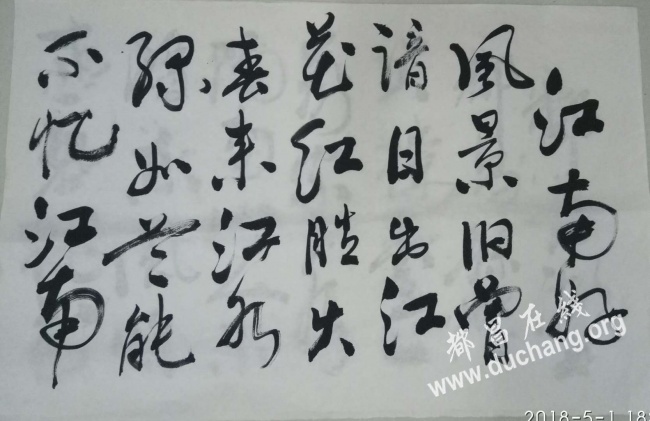 江南好
風景旧曾
谙日出江
花红胜火
春来江水
绿如兰能
不忆江南
都昌在线
www.duchang.org
2018-5-1 18